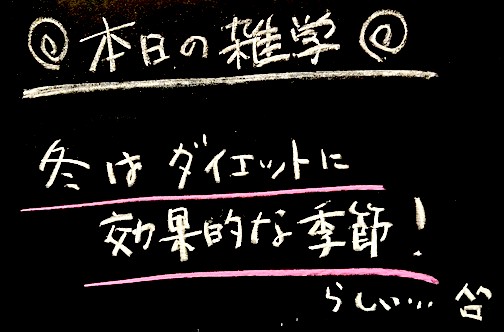 本日の雑学
冬はダイエットに
効果的な季節!
らしい… 笑